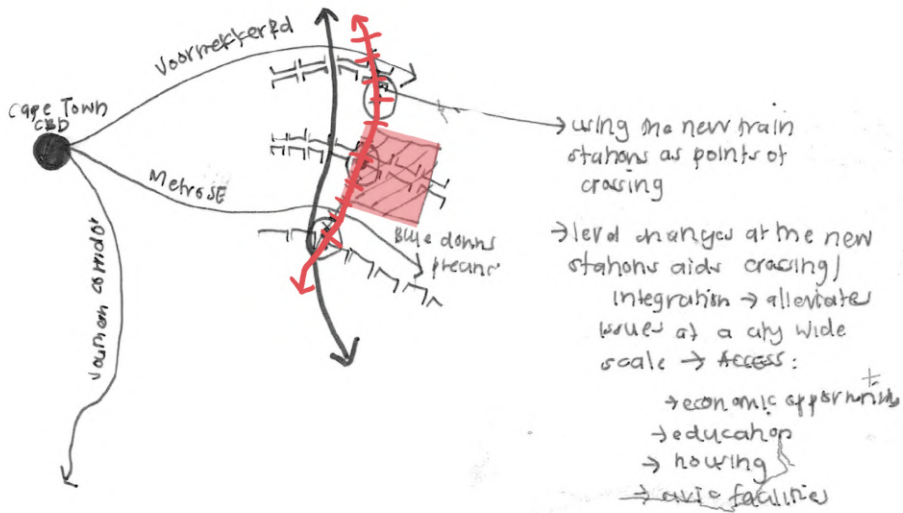 Voortrekker Rd
Cape Town
CBD
Metro SE
Southern corridor
Blue downs
precinct
→ using the new train
stations as points of
crossing
→ level changes at the new
stations aids crossing/
integration → alleviate
issues at a city wide
scale → ACCESS:
→ economic opportunities
→ education
→ housing
→ civic facilities